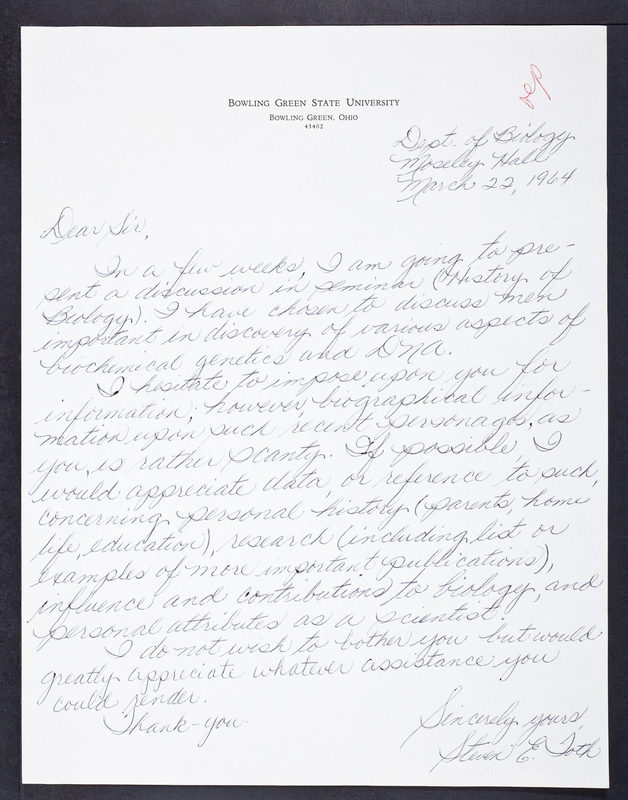 BOWLING GREEN STATE UNIVERSITY
BOWLING GREEN, OHIO
43402
Dept. of Biology
Moseley Hall
March 22, 1964
Dear Sir,
In a few weeks, I am going to pre-
sent a discussion in seminar (History of
Biology). I have chosen to discuss men
important in discovery of various aspects of
biochemical genetics and DNA.
I hesitate to impose upon you for
information; however, biographical infor-
mation upon such recent personages, as
you, is rather scanty. If possible, I
would appreciate data, or reference to such,
concerning personal history (parents, home
life, education), research (including list or
examples of more important publications),
influence and contributions to biology, and
personal attributes as a scientist.
I do not wish to bother you but would
greatly appreciate whatever assistance you
could render.
Thank-you.
Sincerely yours,
Steven E. Toth